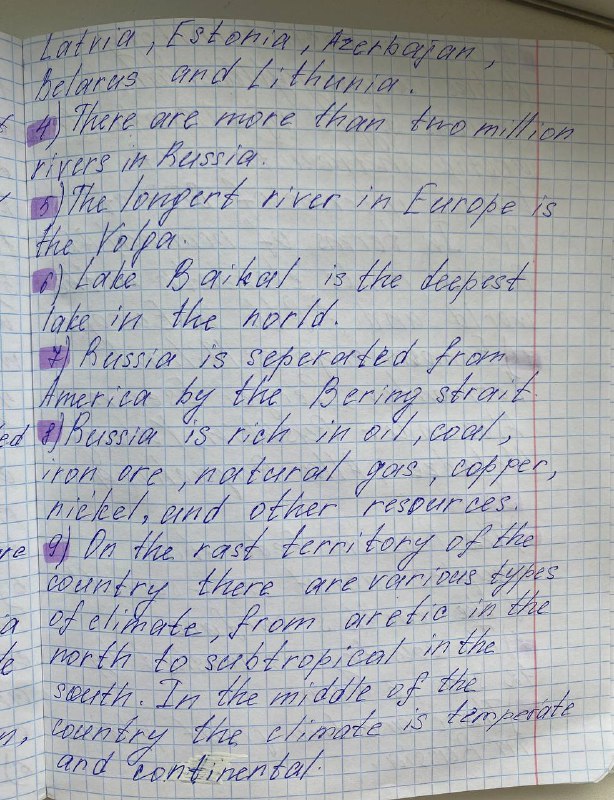 Latvia, Estonia, Azerbajan,
Belarus and Lithunia.
4) There are more than two million
rivers in Russia.
5) The longert river in Europe is
the Volga.
6) Lake Baikal is the deepest
lake in the world.
7) Russia is seperated from
America by the Bering strait.
8) Russia is rich in oil, coal,
iron ore, natural gas, copper,
nickel, and other resources.
9) On the vast territory of the
country there are various types
of climate, from arctic in the
north to subtropical in the
south. In the middle of the
country the climate is temperate
and continental.